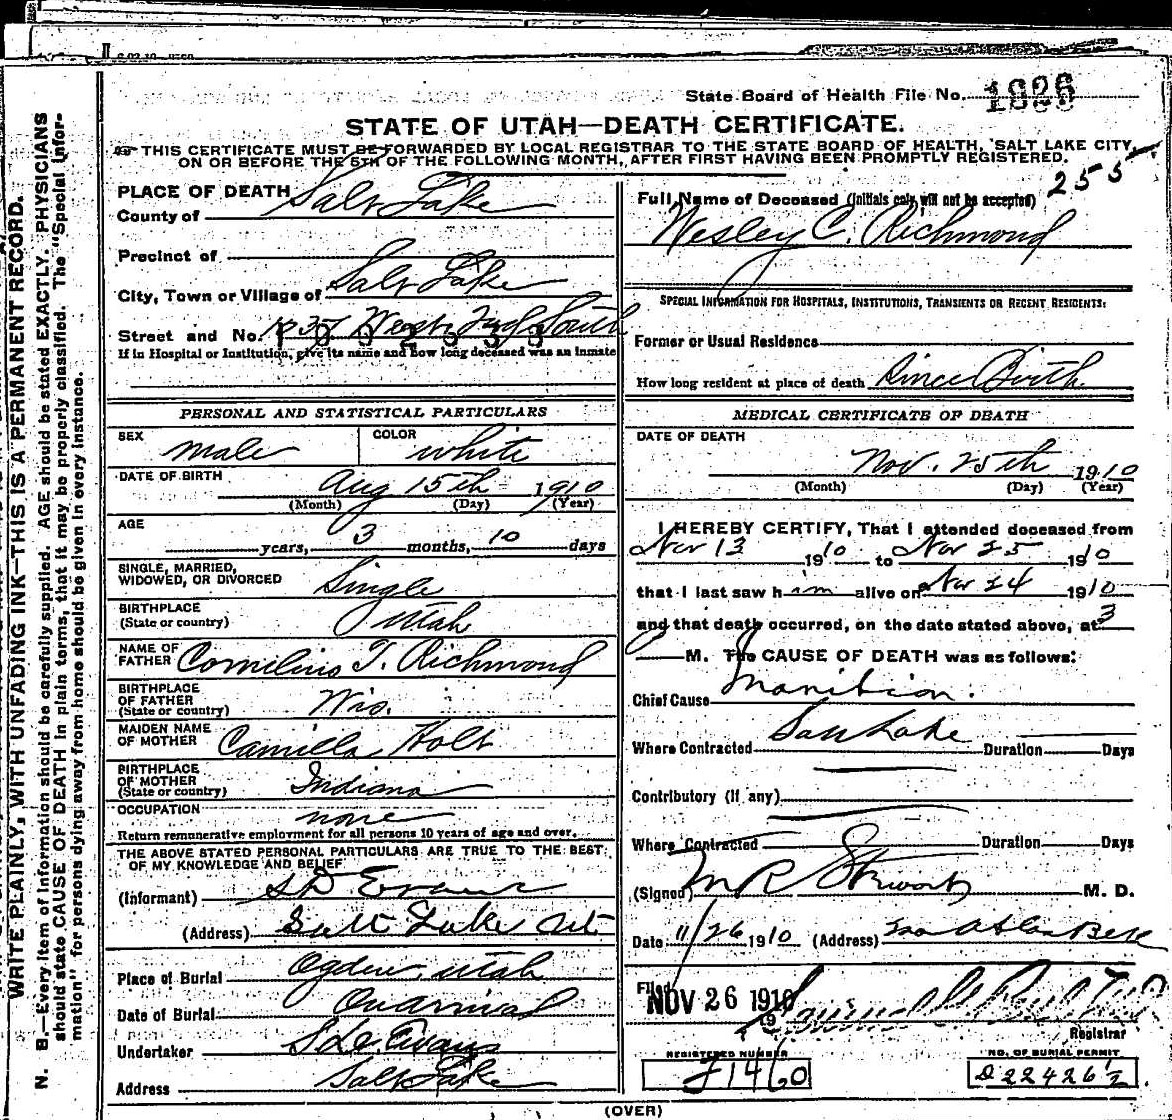 State Board of Health File No. 1826
STATE OF UTAH—DEATH CERTIFICATE.
THIS CERTIFICATE MUST BE FORWARDED BY LOCAL REGISTRAR TO THE STATE BOARD OF HEALTH, SALT LAKE CITY,
ON OR BEFORE THE 5TH OF THE FOLLOWING MONTH, AFTER FIRST HAVING BEEN PROMPTLY REGISTERED.
255
WRITE PLAINLY, WITH UNFADING INK—THIS IS A PERMANENT RECORD.
N. B.—Every item of information should be carefully supplied. AGE should be stated EXACTLY. PHYSICIANS
should state CAUSE OF DEATH in plain terms, that it may be properly classified. The "Special Infor-
mation" for persons dying away from home should be given in every instance.
PLACE OF DEATH
County of Salt Lake
Precinct of
City, Town or Village of Salt Lake
Street and No. West 2nd South
If in Hospital or Institution, give its name and how long deceased was an inmate
PERSONAL AND STATISTICAL PARTICULARS
SEX male COLOR white
DATE OF BIRTH Aug 15th 1910
(Month) (Day) (Year)
AGE
years, 3 months, 10 days
SINGLE, MARRIED,
WIDOWED, OR DIVORCED Single
BIRTHPLACE
(State or country) Utah
NAME OF
FATHER Cornilius T. Richmond
BIRTHPLACE
OF FATHER
(State or country) Wis.
MAIDEN NAME
OF MOTHER Camilla Holt
BIRTHPLACE
OF MOTHER
(State or country) Indiana
OCCUPATION none
Return remunerative employment for all persons 10 years of age and over.
THE ABOVE STATED PERSONAL PARTICULARS ARE TRUE TO THE BEST
OF MY KNOWLEDGE AND BELIEF
(Informant) S D Evans
(Address) Salt Lake Ut
Place of Burial Ogden, Utah
Date of Burial On arrival
Undertaker S. D. Evans
Address Salt Lake
Full Name of Deceased (Initials only will not be accepted)
Wesley C. Richmond
SPECIAL INFORMATION FOR HOSPITALS, INSTITUTIONS, TRANSIENTS OR RECENT RESIDENTS:
Former or Usual Residence
How long resident at place of death Since Birth
MEDICAL CERTIFICATE OF DEATH
DATE OF DEATH
Nov. 25th 1910
(Month) (Day) (Year)
I HEREBY CERTIFY, That I attended deceased from
Nov 13 1910 to Nov 25 1910
that I last saw him alive on Nov 24 1910
and that death occurred, on the date stated above, at 3
M. The CAUSE OF DEATH was as follows:
Chief Cause Inanition.
Where Contracted Salt Lake Duration Days
Contributory (if any)
Where Contracted Duration Days
(Signed) M R Stewart M. D.
Date 11/26 1910 (Address)
Filed
NOV 26 1910
19
Registrar
REGISTERED NUMBER
J1460
NO. OF BURIAL PERMIT
D 22426 1/2
(OVER)